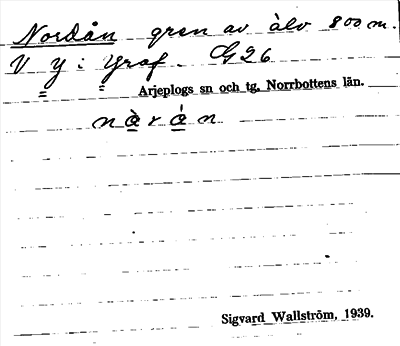 Nordån gren av älv 800 m.
V y i graf. G26
Arjeplogs sn och tg. Norrbottens län.
nạ̀rạ́n
Sigvard Wallström, 1939.